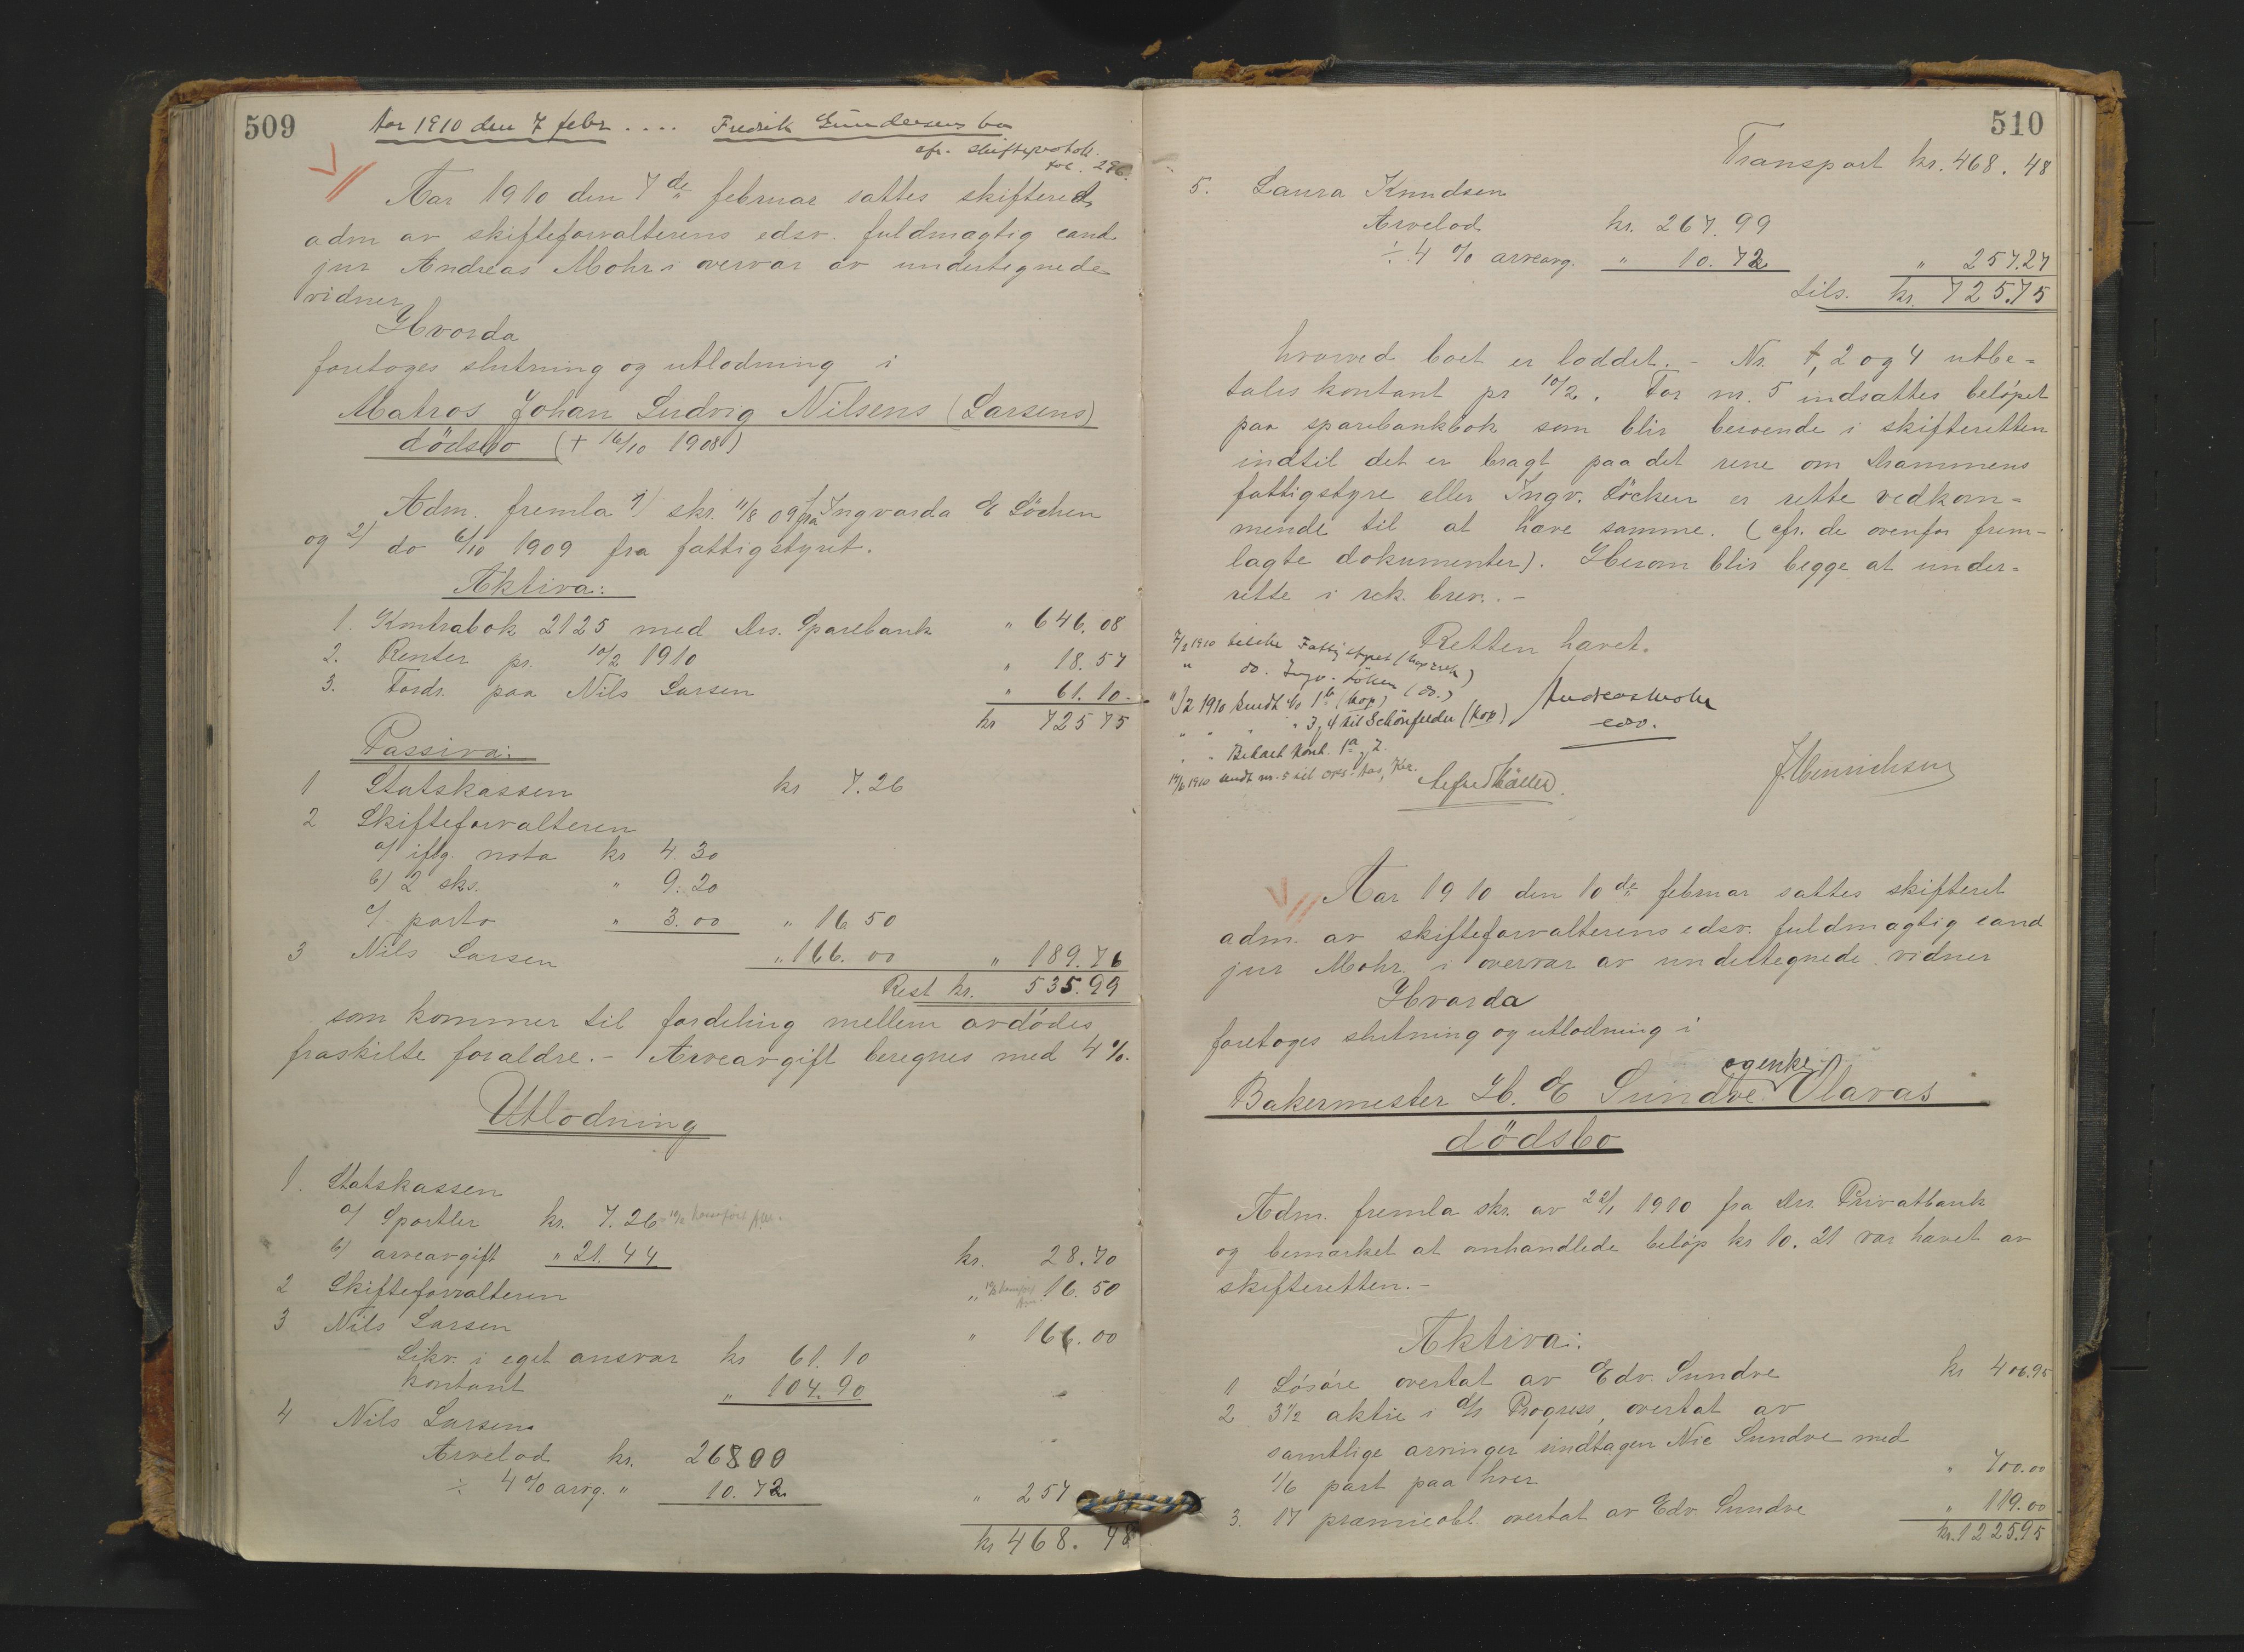 509
Aar 1910 den 7 febr .... Fredrik Gundersens bo
cfr. skifteprotok.
fol. 296.
Aar 1910 den 7de februar sattes skifteret
adm av skifteforvalterens edsv. fuldmægtig cand.
jur Andreas Mohr i overvær av undertegnede
vidner
Hvorda
foretoges slutning og utlodning i
Matros Johan Ludvig Nilsens (Larsens)
dödsbo (+ 16/10 1908)
Adm. fremla 1) skr. 11/8 09 fra Ingvarda E Löchen
og 2) do 6/10 1909 fra fattigstyret.
Aktiva:
1. Kontrabok 2125 med Drs. Sparebank " 646.08
2. Renter pr. 10/2 1910 " 18.57
3. Fordr. paa Nils Larsen " 61.10
kr 725 75
Passiva:
1 Statskassen kr 7.26
2 Skifteforvalteren
a/ iflg. nota kr 4.30
b/ 2 sks. " 9.20
c/ porto " 3.00 " 16 50
3 Nils Larsen " 166.00 " 189.76
Rest kr. 535.99
som kommer til fordeling mellem avdödes
fraskilte forældre. - Arveavgift beregnes med 4%.
Utlodning
1. Statskassen
a/ Sportler kr. 7.26
b/ arveavgift " 21.44 kr. 28.70
2 Skifteforvalteren " 16.50
3 Nils Larsen " 166.00
Likv. i eget ansvar kr 61.10
kontant " 104.90
4 Nils Larsen
Arvelod kr. 268 00
÷ 4% arvg. " 10.72 " 257
kr 468. 48
510
Transport kr. 468.48
5. Laura Knudsen
Arvelod kr. 267.99
÷ 4 % arveavg. " 10.72 " 257.27
tils. kr. 725.75
hvorved boet er loddet. - Nr. 1, 2 og 4 utbe=
tales kontant pr 10/2. For nr. 5 indsættes belöpet
paa sparebankbok som blir beroende i skifteretten
indtil det er bragt paa det rene om Drammens
fattigstyre eller Ingv. Löcken er rette vedkom=
mende til at hæve samme. (cfr. de ovenfor frem-
lagte dokumenter). Herom blir begge at under=
rette i rek. brev. -
Retten hævet.
7/2 1910 tilskr Fattigstyret (kop rek)
" do. Ingv. Löken (do.)
11/2 1910 sendt No 1b (kop)
" " " 3, 4 til Schönfelder (kop)
" " Betalt kont. 1a, 2.
Andreas Mohr
edsv.
Alfred Møller
J. Henrichsen
Aar 1910 den 10de februar sattes skifteret
adm. av skifteforvalterens edsv. fuldmægtig cand
jur Mohr. i overvær av undertegnede vidner
Hvorda
foretoges slutning og utlodning i
og enke
Bakermester H. E Sundve Olavas
dödsbo
Adm. fremla skr. av 22/1 1910 fra Drs. Privatbank
og bemærket at omhandlede belöp kr 10.21 var hævet av
skifteretten. -
Aktiva:
1 Lösöre overtat av Edv. Sundve kr 406.95
2 3 1/2 aktie i A/s Progress, overtat av
samtlige arvinger undtagen Nic Sundve med
1/6 part paa hver " 700.00
3. 17 præmieobl. overtat av Edv. Sundve " 119.00
kr. 1225.95